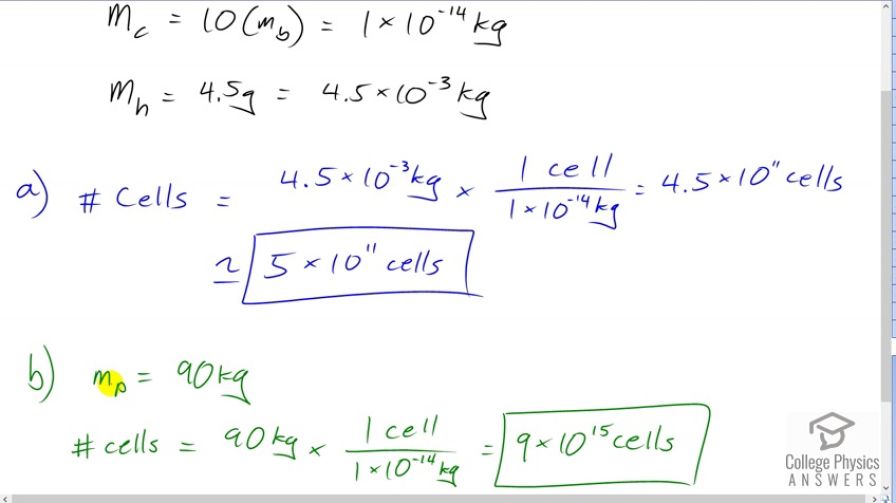 m_c = 10(m_b) = 1 × 10^-14 kg
m_h = 4.5g = 4.5 × 10^-3 kg
a) # cells = 4.5 × 10^-3 kg × 1 cell / 1 × 10^-14 kg = 4.5 × 10^11 cells
≃ 5 × 10^11 cells
b) m_p = 90 kg
# cells = 90 kg × 1 cell / 1 × 10^-14 kg = 9 × 10^15 cells
College Physics
ANSWERS